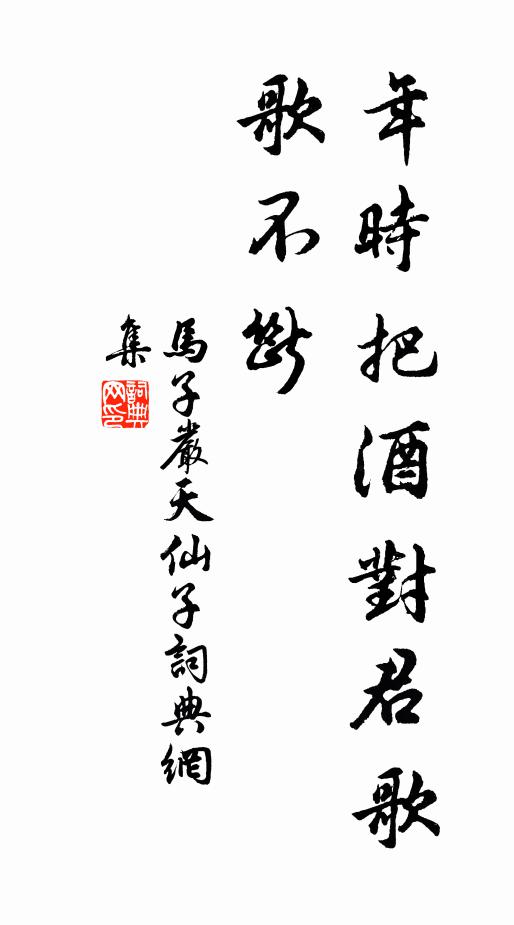 年時把酒對君歌
歌不斷
馬子嚴天仙子詞典網
集
詞典
网印